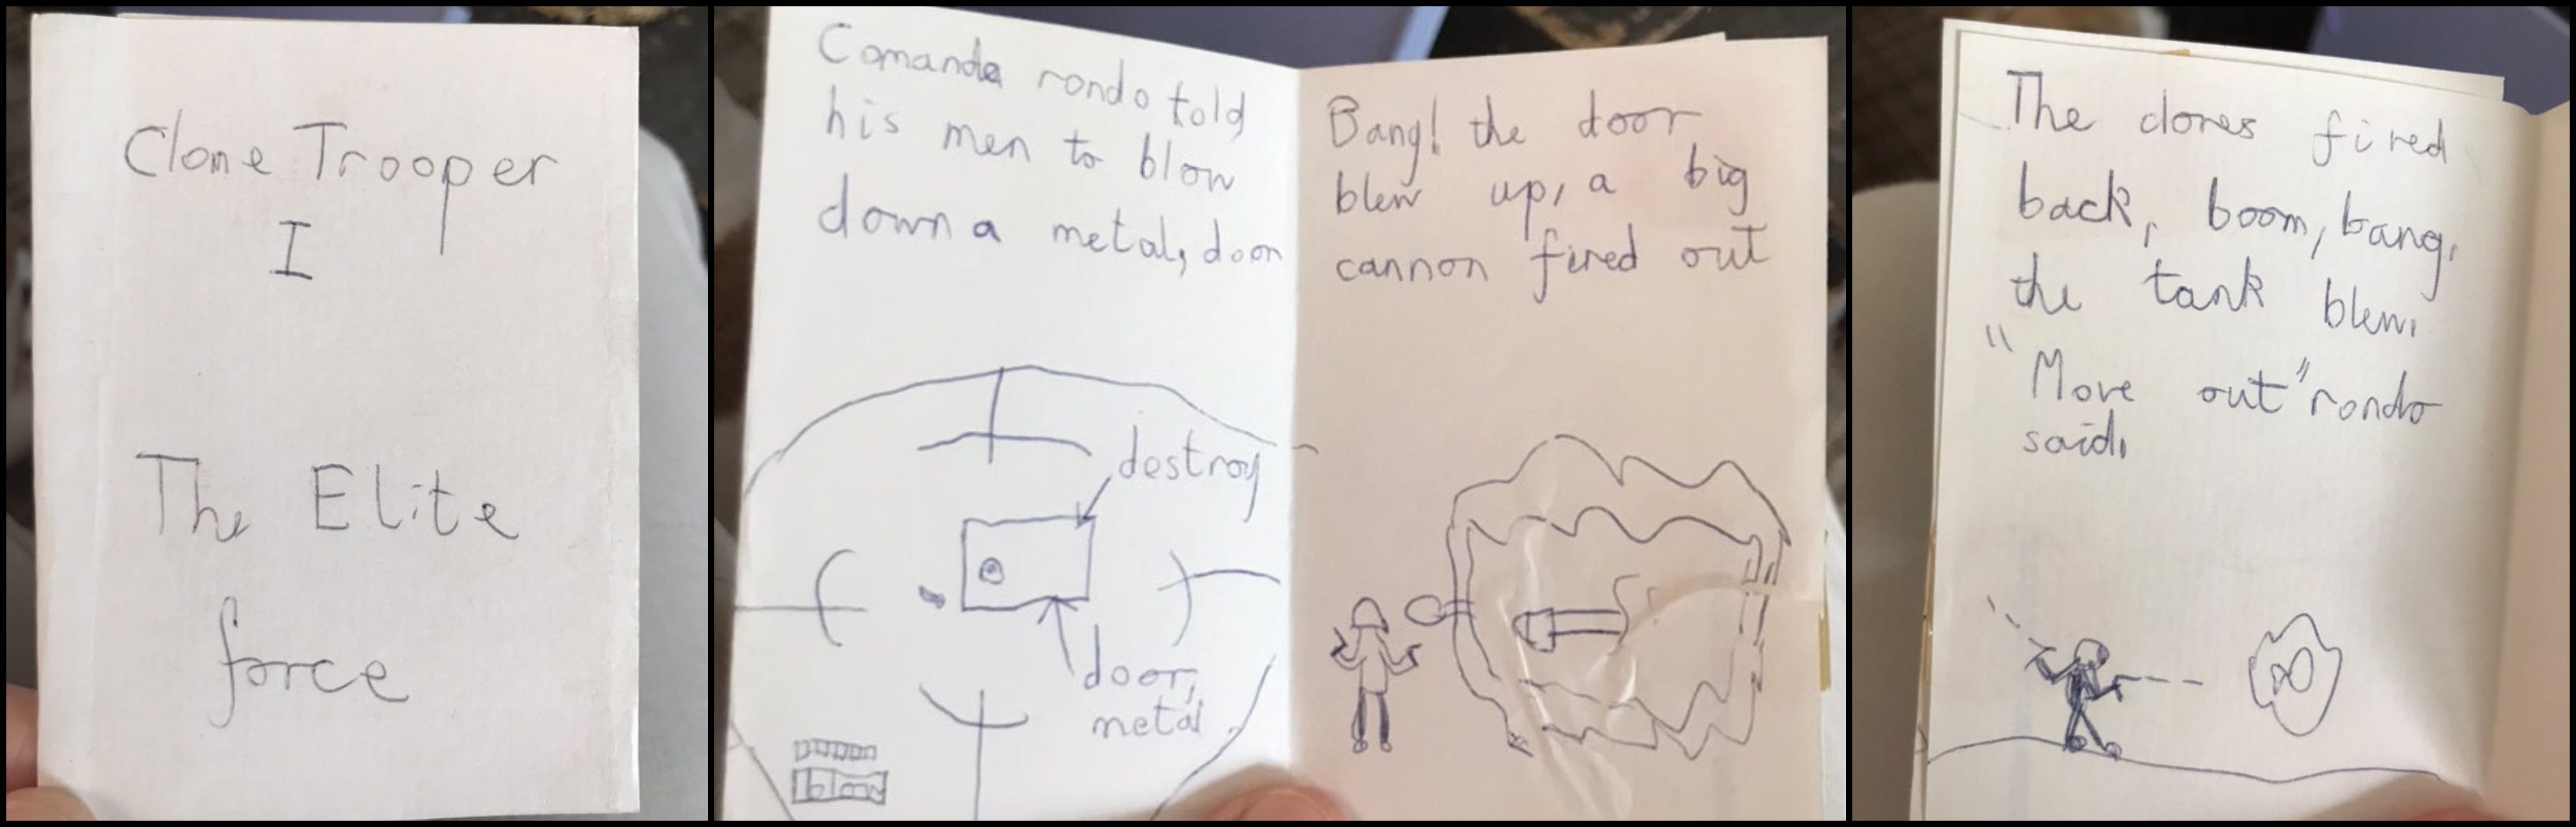 Clone Trooper
I
The Elite
force
Comanda rondo told
his men to blow
down a metal, door
destroy
door,
metal
blow
Bang! the door
blew up, a big
cannon fired out
The clones fired
back, boom, bang,
the tank blew,
"Move out" rondo
said,